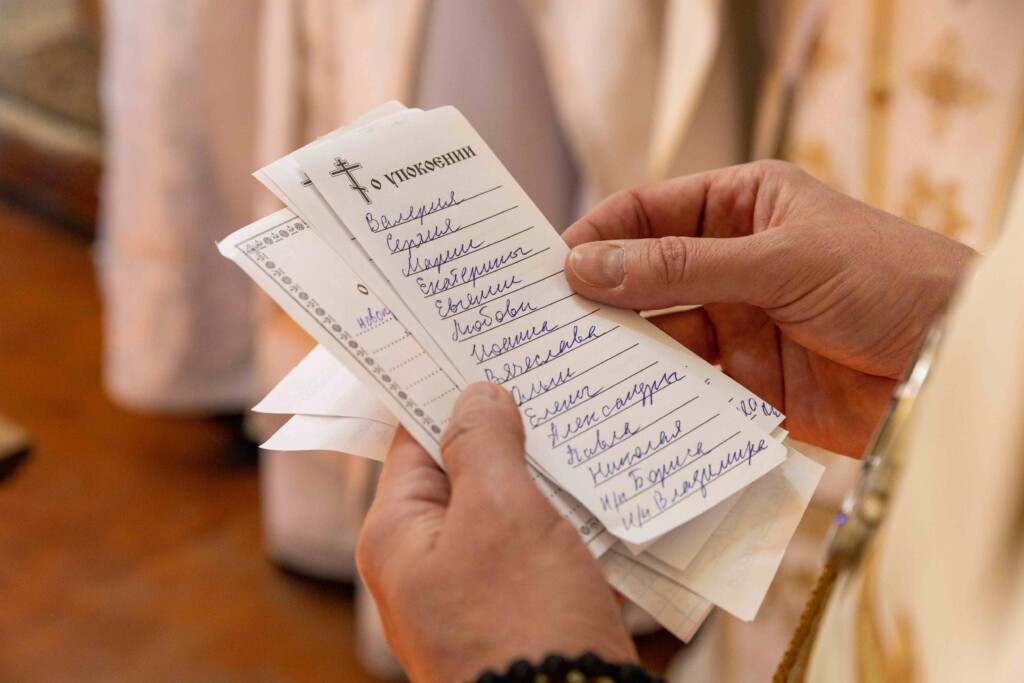 О УПОКОЕНИИ
Валерия
Сергия
Марии
Екатерины
Евгении
Любови
Иоанна
Вячеслава
Ольги
Елены
Александры
Павла
Николая
н/п Бориса
н/п Владимира
О
новоп